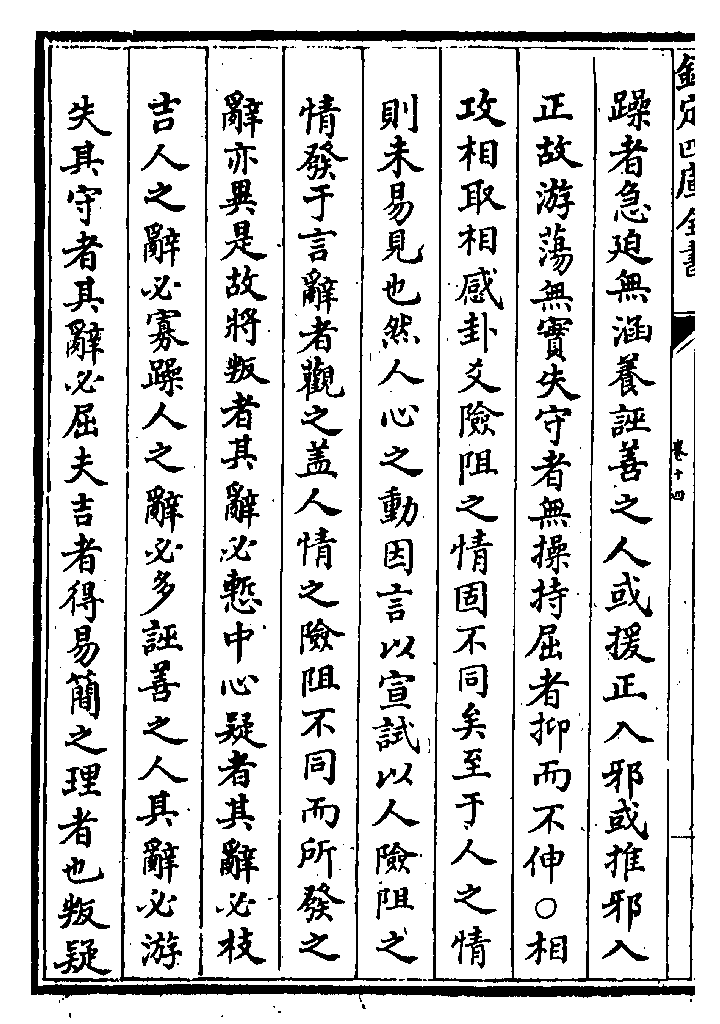 欽定四庫全書
卷十四
躁者急迫無涵養誣善之人或援正入邪或推邪入
正故游蕩無實失守者無操持屈者抑而不伸○相
攻相取相感卦爻險阻之情固不同矣至于人之情
則未易見也然人心之動因言以宣試以人險阻之
情發于言辭者觀之盖人情之險阻不同而所發之
辭亦異是故將叛者其辭必慙中心疑者其辭必枝
吉人之辭必寡躁人之辭必多誣善之人其辭必游
失其守者其辭必屈夫吉者得易簡之理者也叛疑